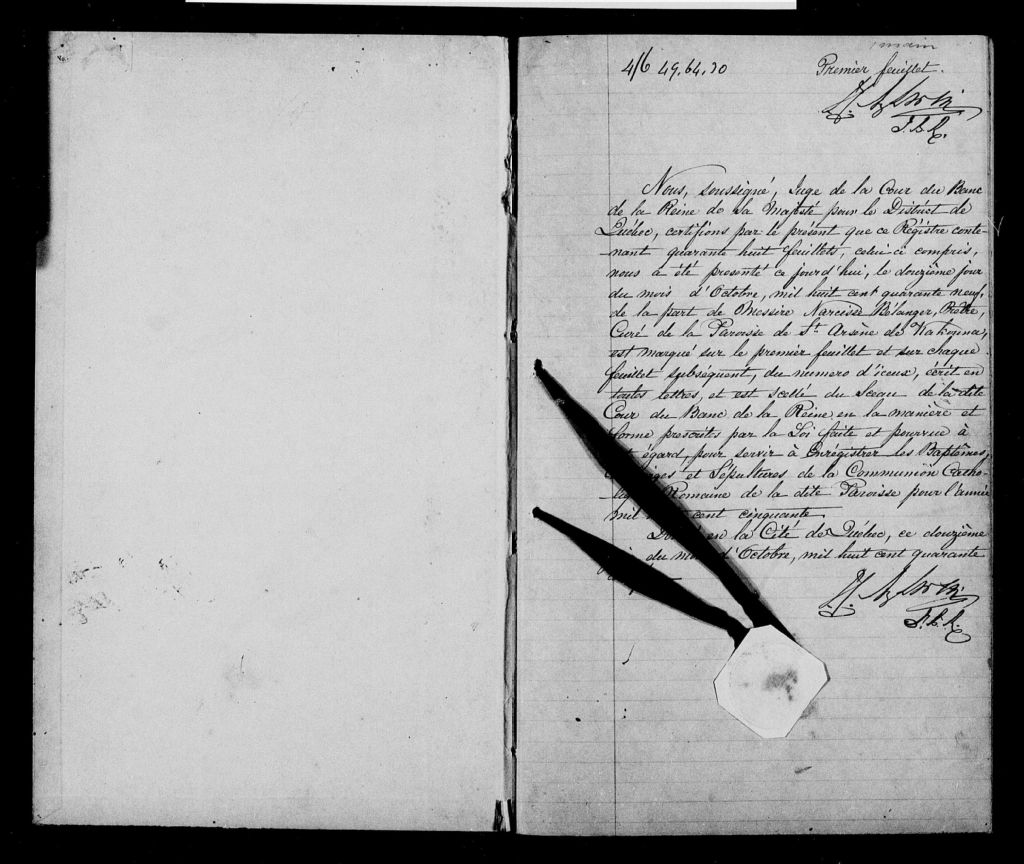 4/6 49.64.30
Premier feuillet.
Nous, soussigné, Juge de la Cour du Banc
de la Reine de Sa Majesté pour le District de
Québec, certifions par le présent que ce Régistre conte-
-nant quarante huit feuillets, celui-ci compris,
nous a été presenté ce jourd'hui, le douzième jour
du mois d'Octobre, mil huit cent quarante neuf,
de la part de Messire Narcisse Bélanger, Prêtre,
Curé de la Paroisse de St. Arsène de
est marqué sur le premier feuillet et sur chaque
feuillet subséquent, du numero d'iceux, écrit en
toutes lettres, et est scellé du Sceau de la dite
Cour du Banc de la Reine en la manière et
forme prescrites par la Loi faite et pourvue à
égard, pour servir à Enrégistrer les Baptêmes,
et Sépultures de la Communion Catho-
Romaine de la dite Paroisse pour l'année
mil cent cinquante.
en la Cité de Québec, ce douzième
du d'Octobre, mil huit cent quarante